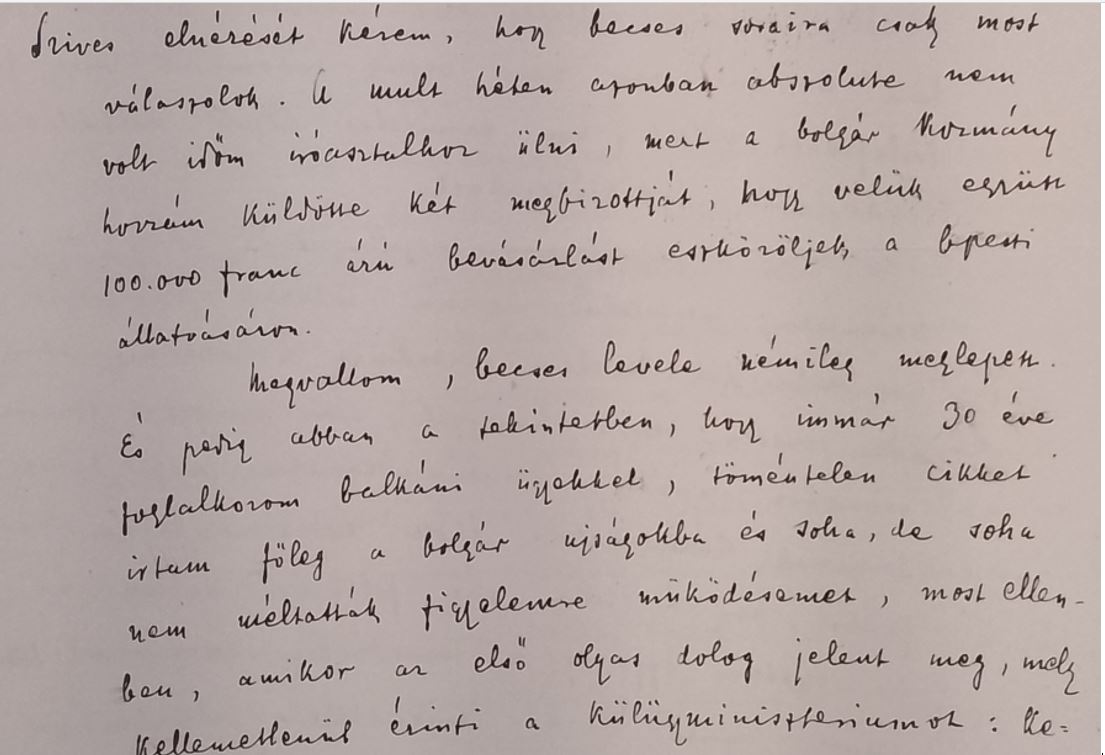 Szives elnézését kérem, hogy becses soraira csak most
válaszolok. A mult héten azonban absolute nem
volt időm íróasztalhoz ülni, mert a bolgár kormány
hozzám küldötte két megbizottját, hogy velük együtt
100.000 franc árú bevásárlást eszközöljek a bpesti
állatvásáron.
Megvallom, becses levele némileg meglepett.
És pedig abban a tekintetben, hogy immár 30 éve
foglalkozom balkáni ügyekkel, töméntelen cikket
irtam főleg a bolgár ujságokba és soha, de soha
nem méltatták figyelemre működésemet, most ellen-
ben, amikor az első olyas dolog jelent meg, mely
kellemetlenül érinti a külügyminisztériumot: ke=